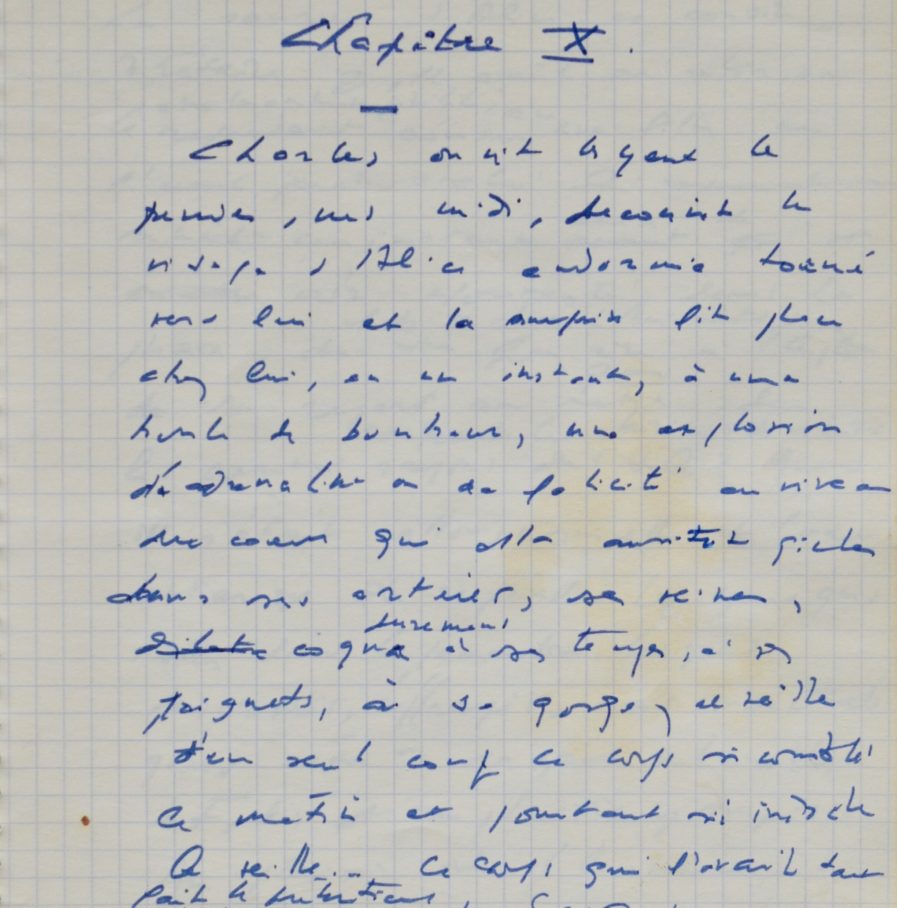 Chapître X.
Charles ouvrit les yeux le
premier, vers midi, découvrit le
visage d'Alice endormie tourné
vers lui et la surprise fit place
chez lui, en un instant, à une
houle de bonheur, une explosion
d'adrénaline ou de félicité au niveau
du coeur qui alla aussitôt gicler
dans ses artères, ses veines,
cogna durement à ses tempes, à ses
poignets, à sa gorge, réveilla
d'un seul coup ce corps si comblé
ce matin et pourtant si
la veille... Ce corps qui l'avait tant
fait